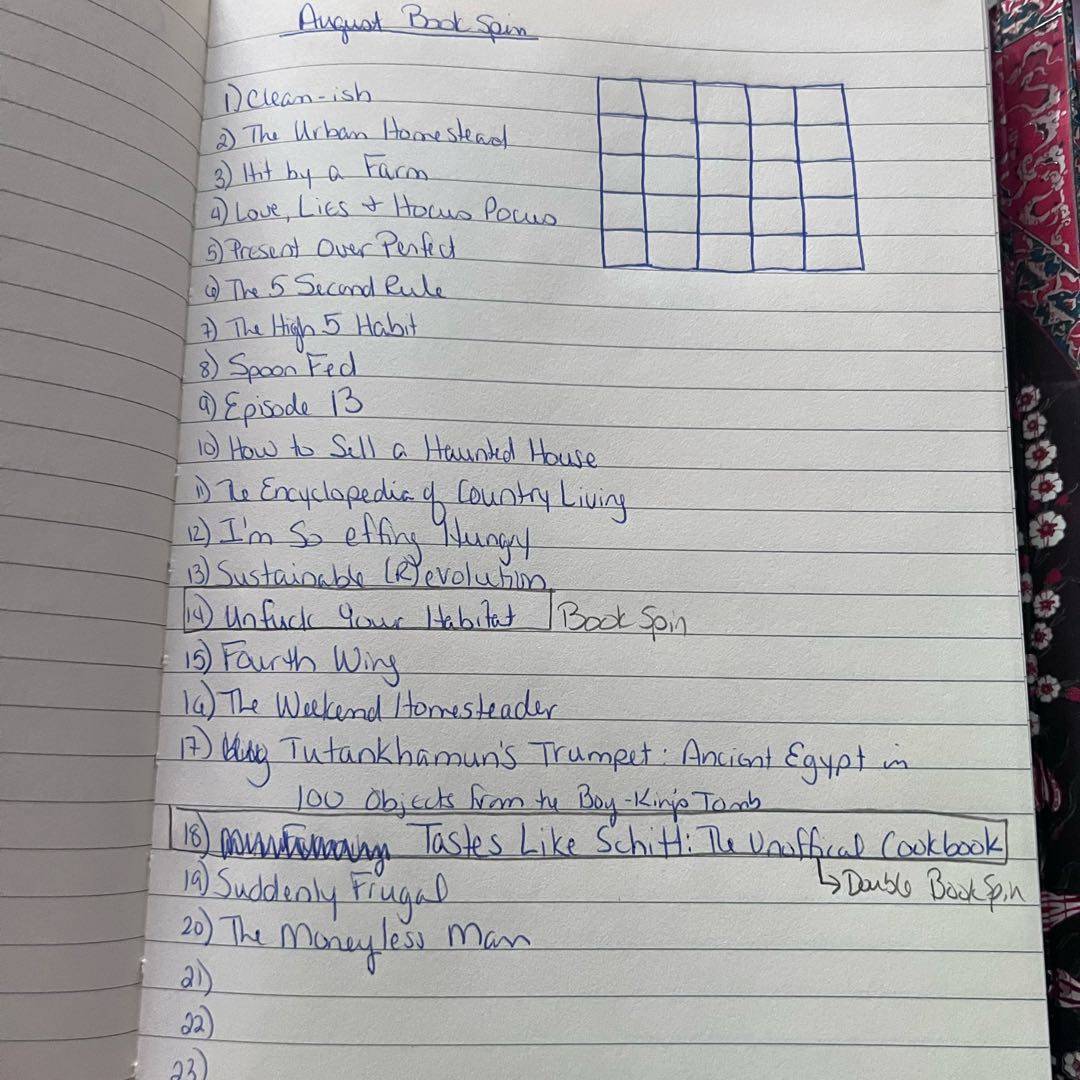 August Book Spin
1) Clean-ish
2) The Urban Homestead
3) Hit by a Farm
4) Love, Lies + Hocus Pocus
5) Present Over Perfect
6) The 5 Second Rule
7) The High 5 Habit
8) Spoon Fed
9) Episode 13
10) How to Sell a Haunted House
11) The Encyclopedia of Country Living
12) I'm So effing Hungry
13) Sustainable (R)evolution
14) Unfuck Your Habitat Book Spin
15) Fourth Wing
16) The Weekend Homesteader
17) Tutankhamun's Trumpet: Ancient Egypt in
100 Objects from the Boy-King's Tomb
18) Tastes Like Schitt: The Unoffical Cookbook
19) Suddenly Frugal
↳ Double Book Spin
20) The Moneyless Man
21)
22)
23)